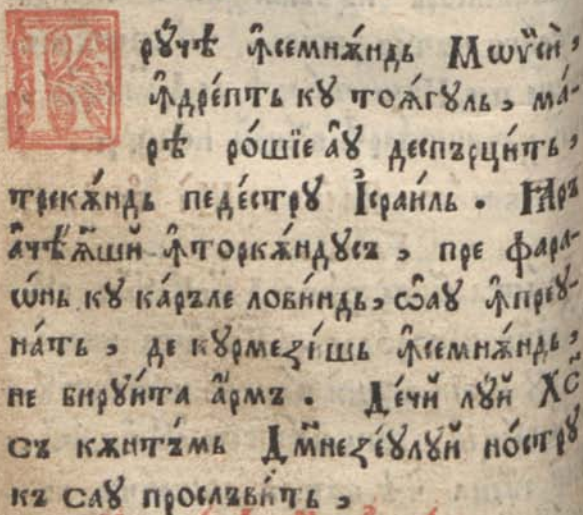 Крꙋ́чѣ ꙟ҆семнѫ́ндь Мѡѵсей,
ꙟ҆дре́птъ кꙋ тоѧ́гꙋль, ма́-
рѣ ро́шїе а҆ꙋ деспърци́ть,
трекѫ́ндь педе́стрꙋ І҆сраи́ль. Ꙗ҆ръ
а҆чѣѧ҆ший ꙟ҆торкѫ́ндꙋсъ, пре фара-
ѡ́нь кꙋ ка́ръле лови́ндь, сѡ҆аꙋ ꙟ҆преꙋ-
на́ть, де кꙋрмези́шь ꙟ҆семнѫ́ндь,
не бирꙋи́та а҆рмъ. Де́чй лꙋ́й Хс҃
съ кѫнтъ́мь Дм҃незе́ꙋлꙋй но́стрꙋ
къ саꙋ прослъви́ть,